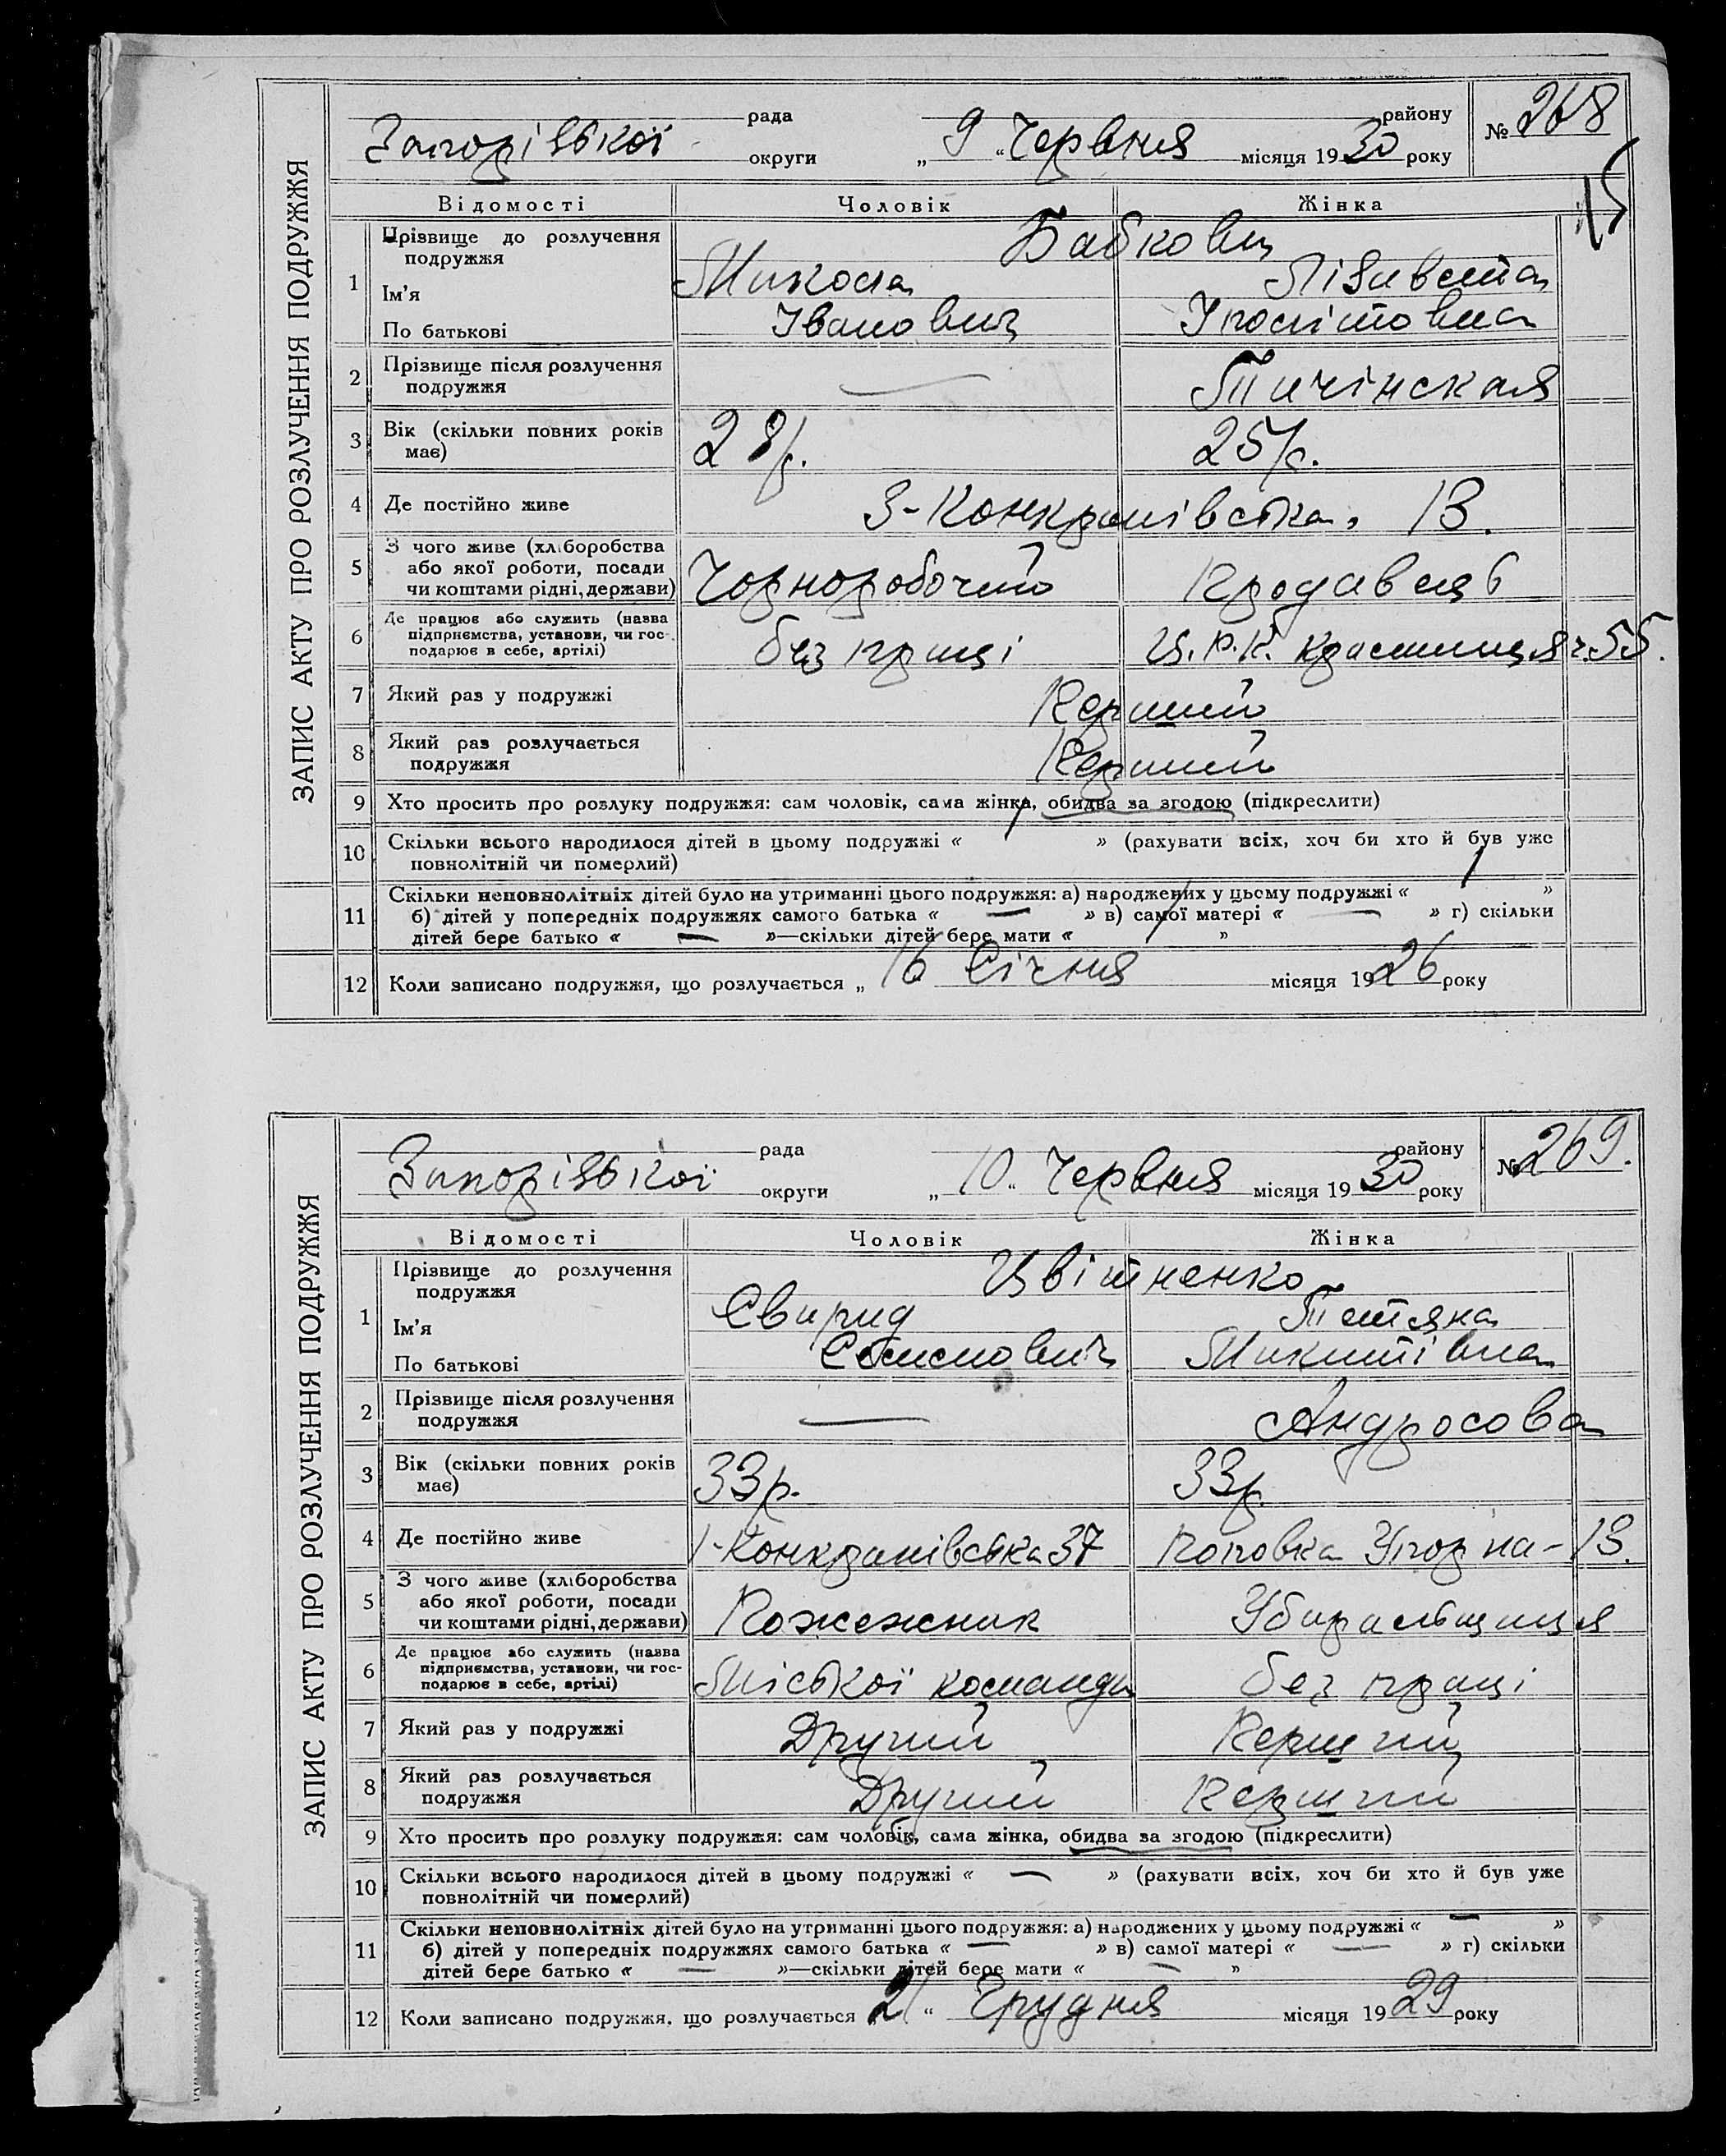 ЗАПИС АКТУ ПРО РОЗЛУЧЕННЯ ПОДРУЖЖЯ
рада района № 268
Запорізької округи „ 9 “ Червня місяця 1930 року
15
Відомості Чоловік Жінка
1 Прізвище до розлучення подружжя Бабкови
Ім’я Микола Лізавета
По батькові Іванович Іполітовна
2 Прізвище після розлучення подружжя — Тичінская
3 Вік (скільки повних років має) 28 р. 25 р.
4 Де постійно живе 3-Конкранівська, 13.
5 З чого живе (хліборобства
або якої роботи, посади
чи коштами рідні, держави) Чорноробочий Продавець
6 Де працює або служить (назва
підприємства, установи, чи гос-
подарює в себе, артілі) без праці Ц.Р.К. крамниця ч. 55.
7 Який раз у подружжі Перший
8 Який раз розлучається подружжя Перший
9 Хто просить про розлуку подружжя: сам чоловік, сама жінка, обидва за згодою (підкреслити)
10 Скільки всього народилося дітей в цьому подружжі « 1 » (рахувати всіх, хоч би хто й був уже
повнолітній чи померлий)
11 Скільки неповнолітніх дітей було на утриманні цього подружжя: а) народжених у цьому подружжі « 1 »
б) дітей у попередніх подружжях самого батька « — » в) самої матері « — » г) скільки
дітей бере батько « — »—скільки дітей бере мати « 1 »
12 Коли записано подружжя, що розлучається „ 16 Січня місяця 1926 року
ЗАПИС АКТУ ПРО РОЗЛУЧЕННЯ ПОДРУЖЖЯ
рада району № 269.
Запорізької округи „ 10 “ Червня місяця 1930 року
Відомості Чоловік Жінка
1 Прізвище до розлучення подружжя Цвітненко
Ім’я Свирид Тетяна
По батькові Семенович Микитівна
2 Прізвище після розлучення подружжя — Андросова
3 Вік (скільки повних років має) 33 р. 33 р.
4 Де постійно живе 1-Конкранівська 37 Поповка 13.
5 З чого живе (хліборобства
або якої роботи, посади
чи коштами рідні, держави) Пожежник Убиральщиця
6 Де працює або служить (назва
підприємства, установи, чи гос-
подарює в себе, артілі) Міської команди без праці
7 Який раз у подружжі Другий Перший
8 Який раз розлучається подружжя Другий Перший
9 Хто просить про розлуку подружжя: сам чоловік, сама жінка, обидва за згодою (підкреслити)
10 Скільки всього народилося дітей в цьому подружжі « — » (рахувати всіх, хоч би хто й був уже
повнолітній чи померлий)
11 Скільки неповнолітніх дітей було на утриманні цього подружжя: а) народжених у цьому подружжі « — »
б) дітей у попередніх подружжях самого батька « — » в) самої матері « — » г) скільки
дітей бере батько « — »—скільки дітей бере мати « — »
12 Коли записано подружжя, що розлучається „ 21 “ Грудня місяця 1929 року